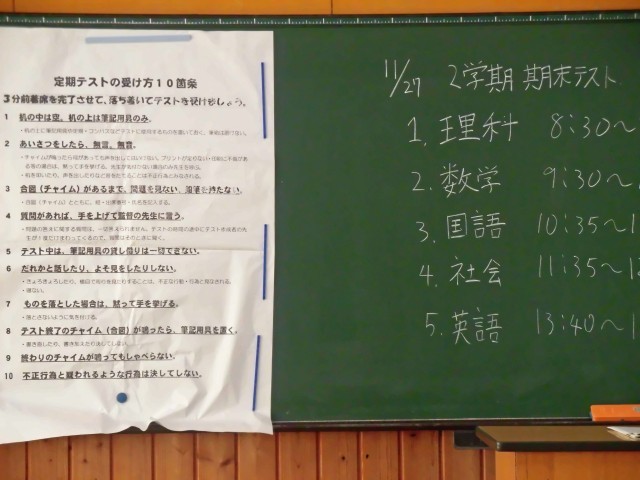 定期テストの受け方10箇条
3分前着席を完了させて、落ち着いてテストを受けましょう。
1 机の中は空。机の上は筆記用具のみ。
2 あいさつをしたら、無言。無音。
3 合図（チャイム）があるまで、問題を見ない、鉛筆を持たない。
4 質問があれば、手を上げて監督の先生に言う。
5 テスト中は、筆記用具の貸し借りは一切できない。
6 だれかと話したり、よそ見をしたりしない。
7 ものを落とした場合は、黙って手を挙げる。
・落とさないように気を付ける。
8 テスト終了のチャイム（合図）が鳴ったら、筆記用具を置く。
9 終わりのチャイムが鳴ってもしゃべらない。
10 不正行為と疑われるような行為は決してしない。
11/27 2学期 期末テスト
1. 理科 8:30〜
2. 数学 9:30〜
3. 国語 10:35〜1
4. 社会 11:35〜1
5. 英語 13:40〜1